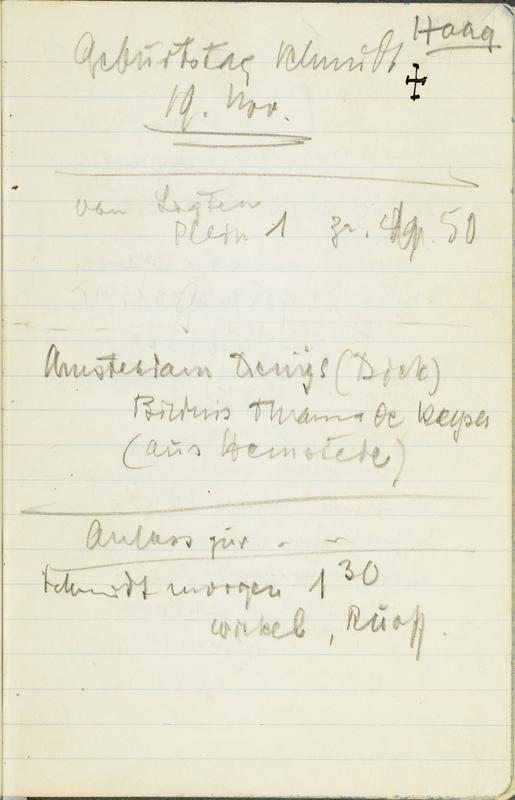 Haag
Geburtstag Schmidt
19. Nov.
van Logten
Plein 1 50
Amsterdam Denijs (Dick)
Bildnis Thomas de Keyser
(aus Hemstede)
Anlass zur
Schmidt morgen 1 30
Winkel, Ruoff.